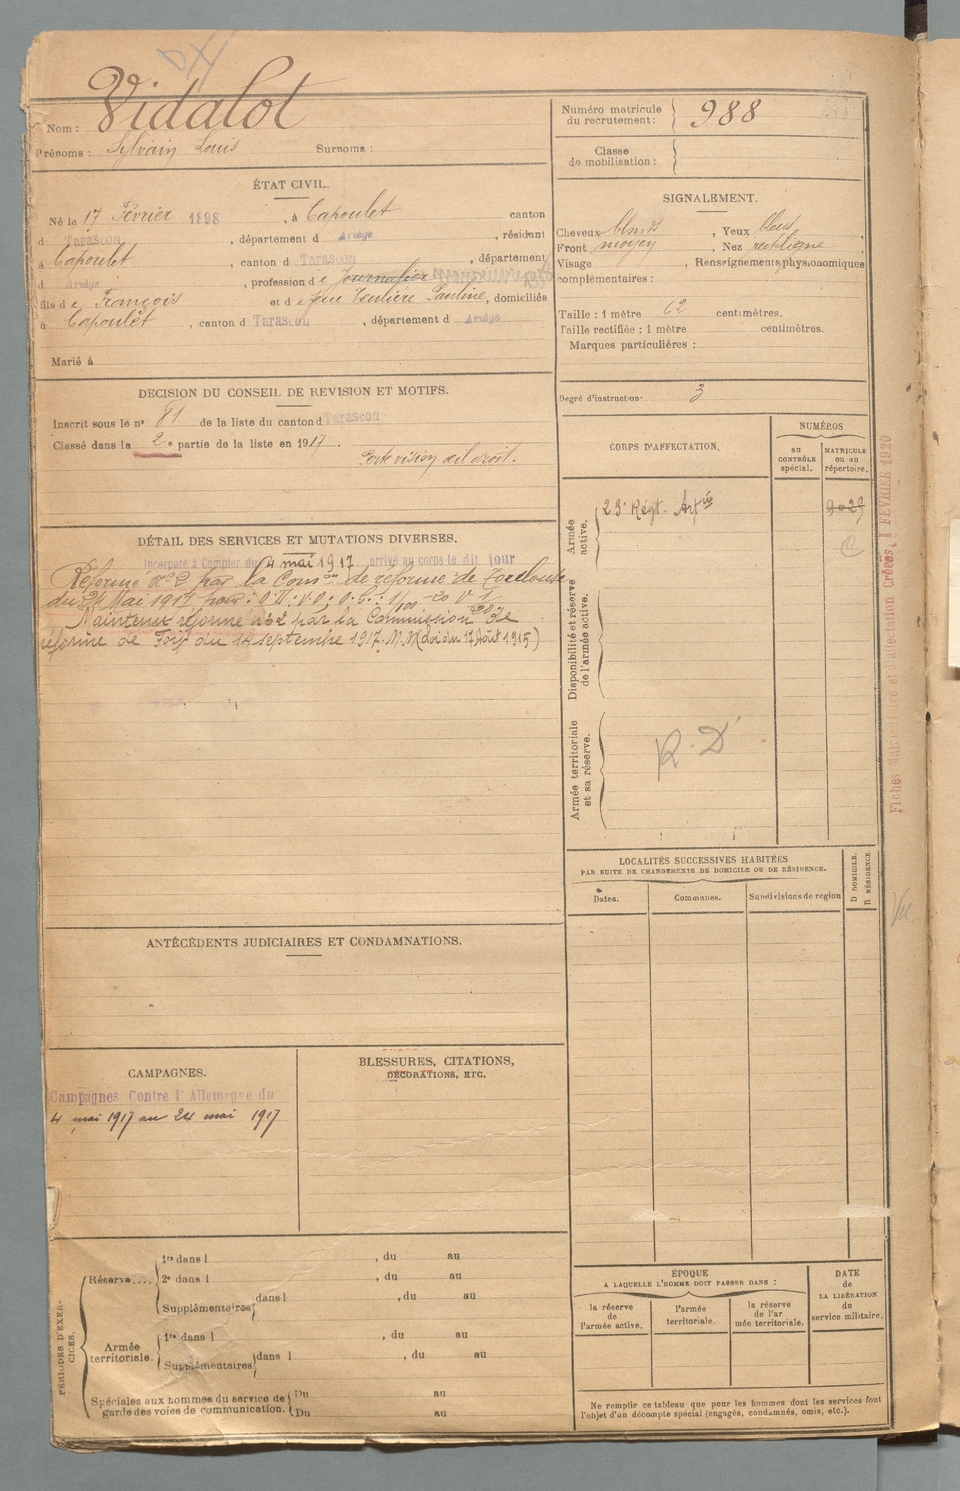 Vidalot
Nom :
Prénoms : Sylvain Louis Surnoms :
Numéro matricule du recrutement : 988
Classe de mobilisation :
ÉTAT CIVIL.
Né le 17 Février 1898, à Capoulet canton
d Tarascon, département d Ariège, résidant
à Capoulet, canton d Tarascon, département
d Ariège, profession d e Journalier
fils d e François et d e feue Teulière Pauline, domiciliés
à Capoulet, canton d Tarascon, département d Ariège
Marié à
SIGNALEMENT.
Cheveux blonds, Yeux bleus,
Front moyen, Nez rectiligne
Visage, Renseignements physionomiques
complémentaires :
Taille : 1 mètre 62 centimètres.
Taille rectifiée : 1 mètre centimètres.
Marques particulières :
Degré d'instruction : 3
DECISION DU CONSEIL DE REVISION ET MOTIFS.
Inscrit sous le nº 81 de la liste du canton d Tarascon
Classé dans la 2e partie de la liste en 1917.
Perte vision œil droit.
DÉTAIL DES SERVICES ET MUTATIONS DIVERSES.
Incorporé à Compter du 4 mai 1917 arrivé au corps le dit jour
Réformé nº 2 par la Comon de réforme de Toulouse
du 24 Mai 1917 pour :
Maintenu réformé nº 2 par la Commission de
réforme de Foix du 14 septembre 1917. (Loi du 17 Août 1915)
CORPS D'AFFECTATION.
NUMÉROS
au CONTRÔLE spécial.
MATRICULE ou au répertoire.
Armée active.
23e Régt. Artie
Disponibilité et réserve de l'armée active.
Armée territoriale et sa réserve.
R. D
LOCALITÉS SUCCESSIVES HABITÉES
PAR SUITE DE CHANGEMENTS DE DOMICILE OU DE RÉSIDENCE.
Dates. Communes. Subdivisions de région
D DOMICILE.
R RÉSIDENCE
ANTÉCÉDENTS JUDICIAIRES ET CONDAMNATIONS.
CAMPAGNES.
Campagnes Contre l'Allemagne du
4 mai 1917 au 24 mai 1917
BLESSURES, CITATIONS,
DÉCORATIONS, ETC.
PÉRIODES D'EXERCICES.
Réserve....
1re dans l , du au
2e dans l , du au
Supplémentaires dans l , du au
Armée territoriale.
1re dans l , du au
Supplémentaires dans l , du au
Spéciales aux hommes du service de
garde des voies de communication.
Du au
Du au
ÉPOQUE
A LAQUELLE L'HOMME DOIT PASSER DANS :
la réserve de l'armée active.
l'armée territoriale.
la réserve de l'ar mée territoriale.
DATE de LA LIBÉRATION du service militaire.
Ne remplir ce tableau que pour les hommes dont les services font
l'objet d'un décompte spécial (engagés, condamnés, omis, etc.).
FÉVRIER 1920